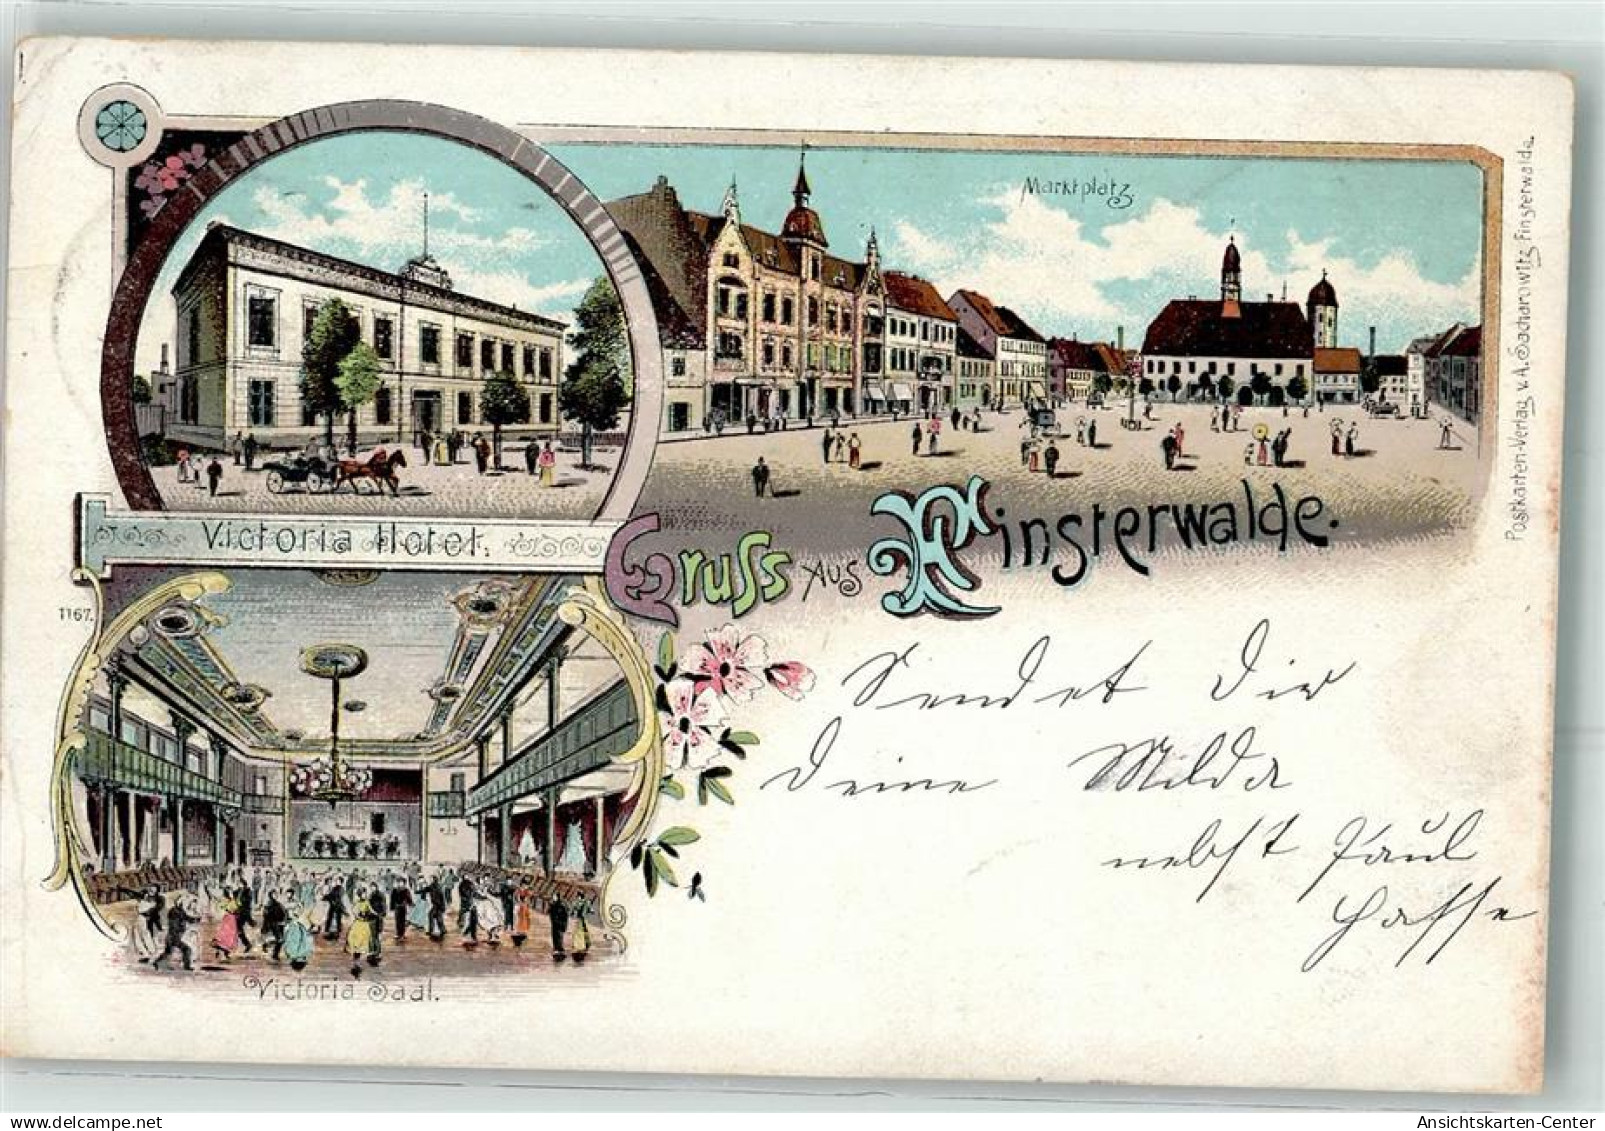 Marktplatz
Victoria Hotel.
Gruss Aus Finsterwalde.
1167.
Victoria Saal.
Sendet Dir
Deine Milda
nebst Paul
Hasse
Postkarten-Verlag v. A. Sacharowitz Finsterwalde.
Ansichtskarten-Center